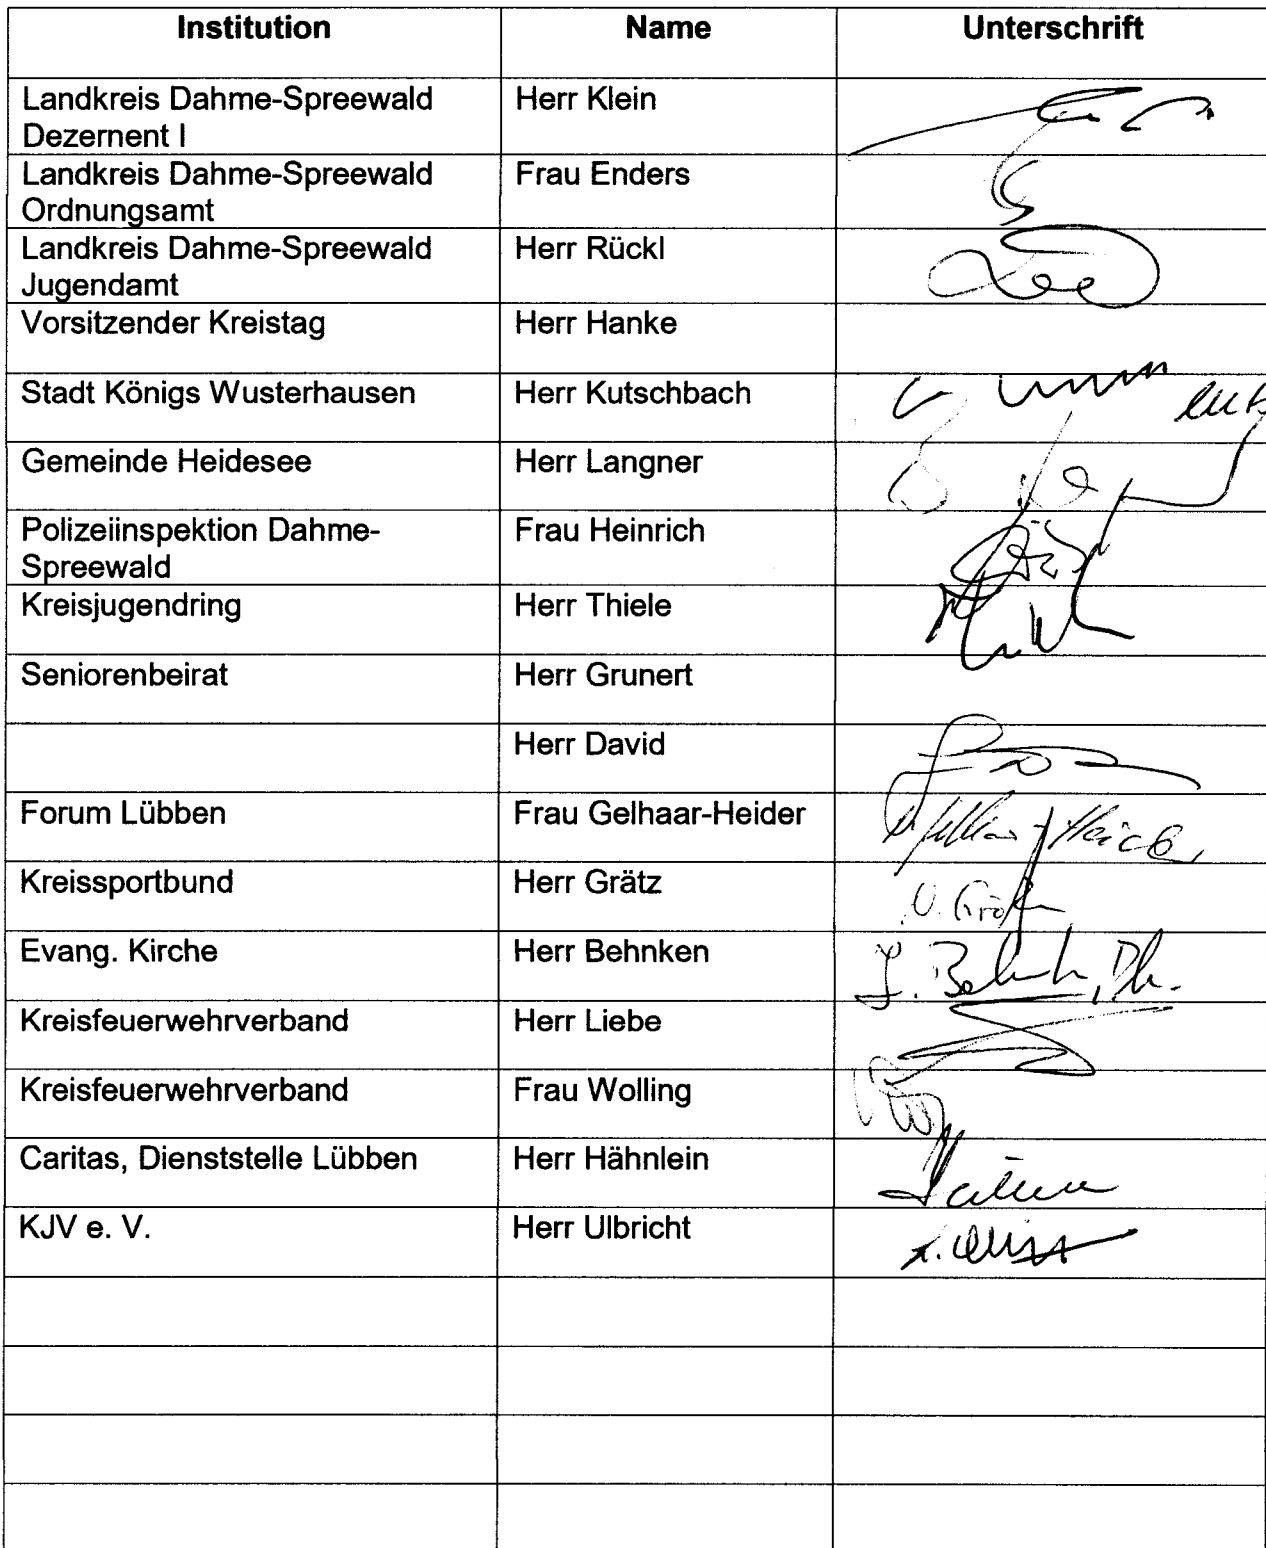 Institution Name Unterschrift
Landkreis Dahme-Spreewald Herr Klein
Dezernent I
Landkreis Dahme-Spreewald Frau Enders
Ordnungsamt
Landkreis Dahme-Spreewald Herr Rückl
Jugendamt
Vorsitzender Kreistag Herr Hanke
Stadt Königs Wusterhausen Herr Kutschbach
Gemeinde Heidesee Herr Langner
Polizeiinspektion Dahme- Frau Heinrich
Spreewald
Kreisjugendring Herr Thiele
Seniorenbeirat Herr Grunert
Herr David
Forum Lübben Frau Gelhaar-Heider
Kreissportbund Herr Grätz
Evang. Kirche Herr Behnken
Kreisfeuerwehrverband Herr Liebe
Kreisfeuerwehrverband Frau Wolling
Caritas, Dienststelle Lübben Herr Hähnlein
KJV e. V. Herr Ulbricht